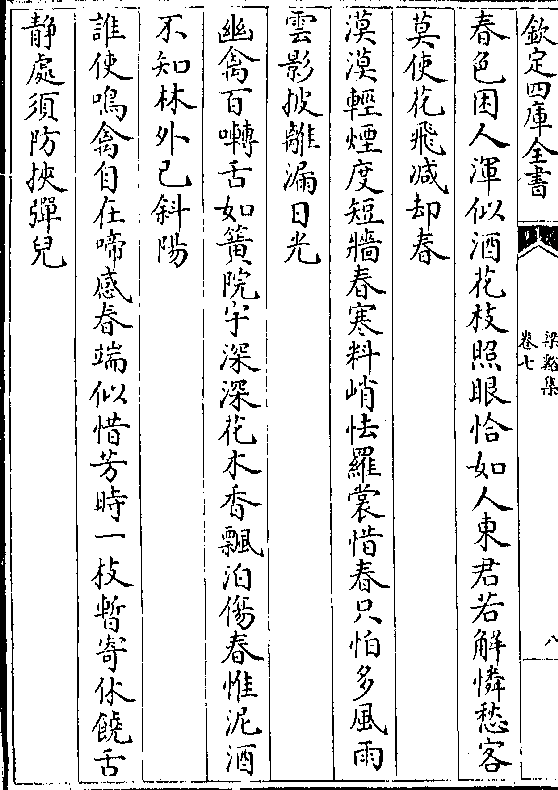 欽定四庫全書
梁谿集
卷七
八
春色困人渾似酒花枝照眼恰如人東君若解憐愁客
莫使花飛減却春
漠漠輕煙度短牆春寒料峭怯羅裳惜春只怕多風雨
雲影披離漏日光
幽禽百囀舌如簧院宇深深花木香飄泊傷春惟泥酒
不知林外已斜陽
誰使鳴禽自在啼感春端似惜芳時一枝暫寄休饒舌
静處須防挾彈兒